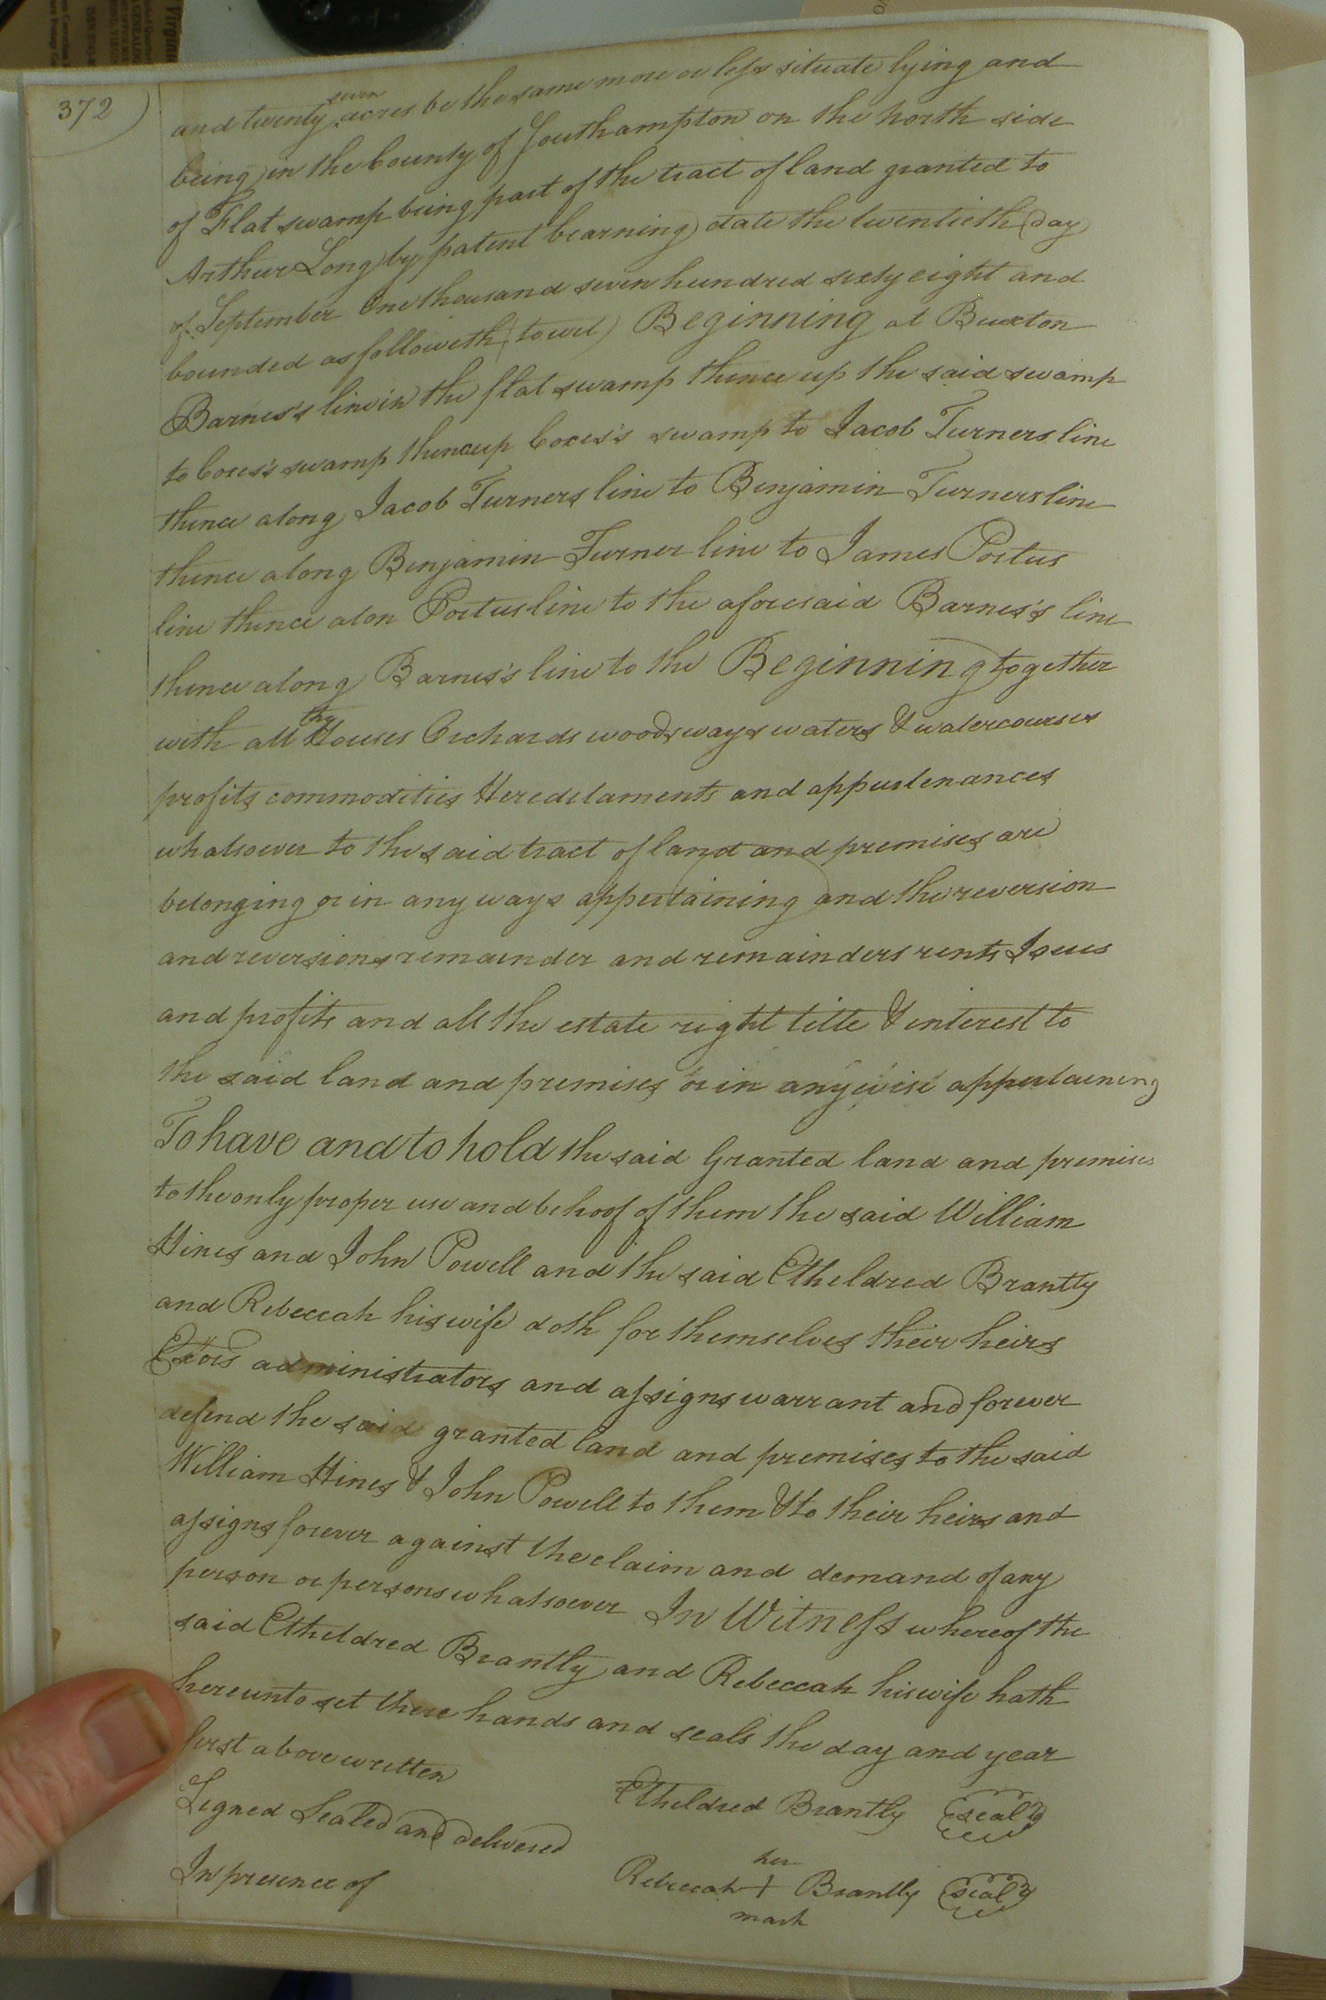 372
and twenty seven acres be the same more or less situate lying and
being in the County of Southampton on the north side
of Flat swamp being part of the tract of land granted to
Arthur Long by patent bearning date the twentieth day
of September One thousand seven hundred sixty eight and
bounded as followeth (towit) Beginning at Buxton
Barnes's line in the flat swamp thence up the said swamp
to Coxes's swamp thence up Coxes's swamp to Jacob Turners line
thence along Jacob Turners line to Benjamin Turners line
thence along Benjamin Turner line to James Portus
line thence alon Portus line to the aforesaid Barnes's line
thence along Barnes's line to the Beginning together
with all the Houses Orchards woods ways waters & watercourses
profits commodities Heredetaments and appurtenances
whatsoever to the said tract of land and premises are
belonging or in any ways appertaining and the reversion
and reversions remainder and remainders rents Isues
and profits and all the estate right title & interest to
the said land and premises or in anywise appertaining
To have and to hold the said Granted land and premises
to the only proper use and behoof of them the said William
Hines and John Powell and the said Etheldred Brantly
and Rebeccah his wife doth for themselves their heirs
Exors administrators and assigns warrant and forever
defend the said granted land and premises to the said
William Hines & John Powell to them & to their heirs and
assigns forever against the claim and demand of any
person or persons whatsoever In Witness whereof the
said Etheldred Brantly and Rebeccah his wife hath
hereunto set there hands and seals the day and year
first above written
Signed Sealed and delivered
In presence of
Etheldred Brantly seal
her
Rebeccah + Brantly seal
mark